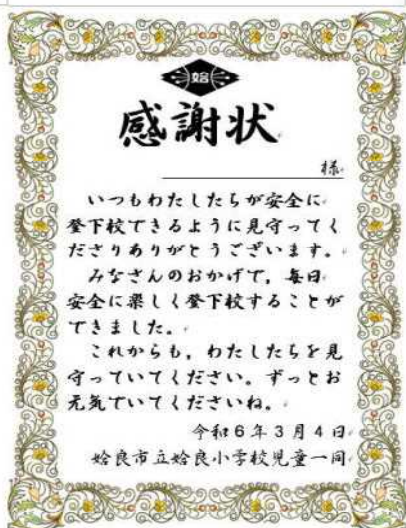 姶
感謝状
様
いつもわたしたちが安全に
登下校できるように見守ってく
ださりありがとうございます。
みなさんのおかげで，毎日
安全に楽しく登下校することが
できました。
これからも，わたしたちを見
守っていてください。ずっとお
元気でいてくださいね。
令和６年３月４日
姶良市立姶良小学校児童一同